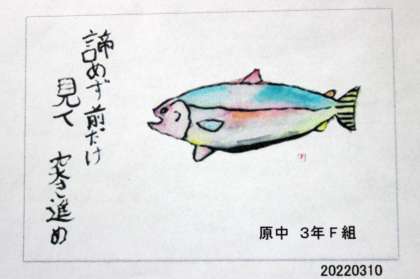 諦めず前だけ
見て 突き進め
原中 3年F組
20220310